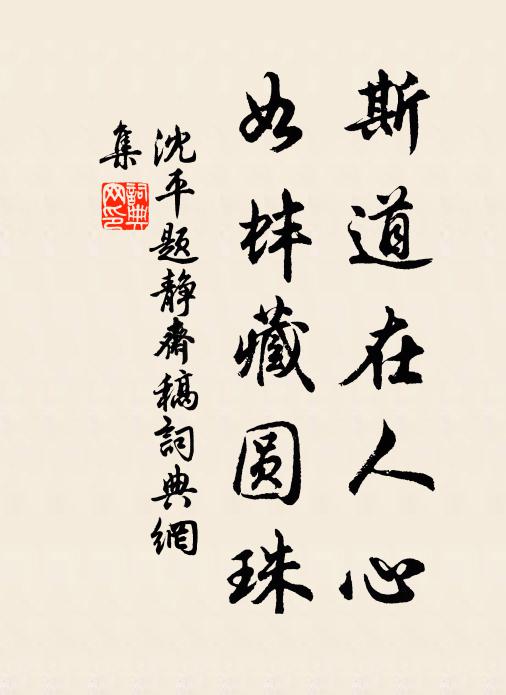 斯道在人心
如蚌藏圆珠
沈平题静斋稿詞典網
集
詞典网印